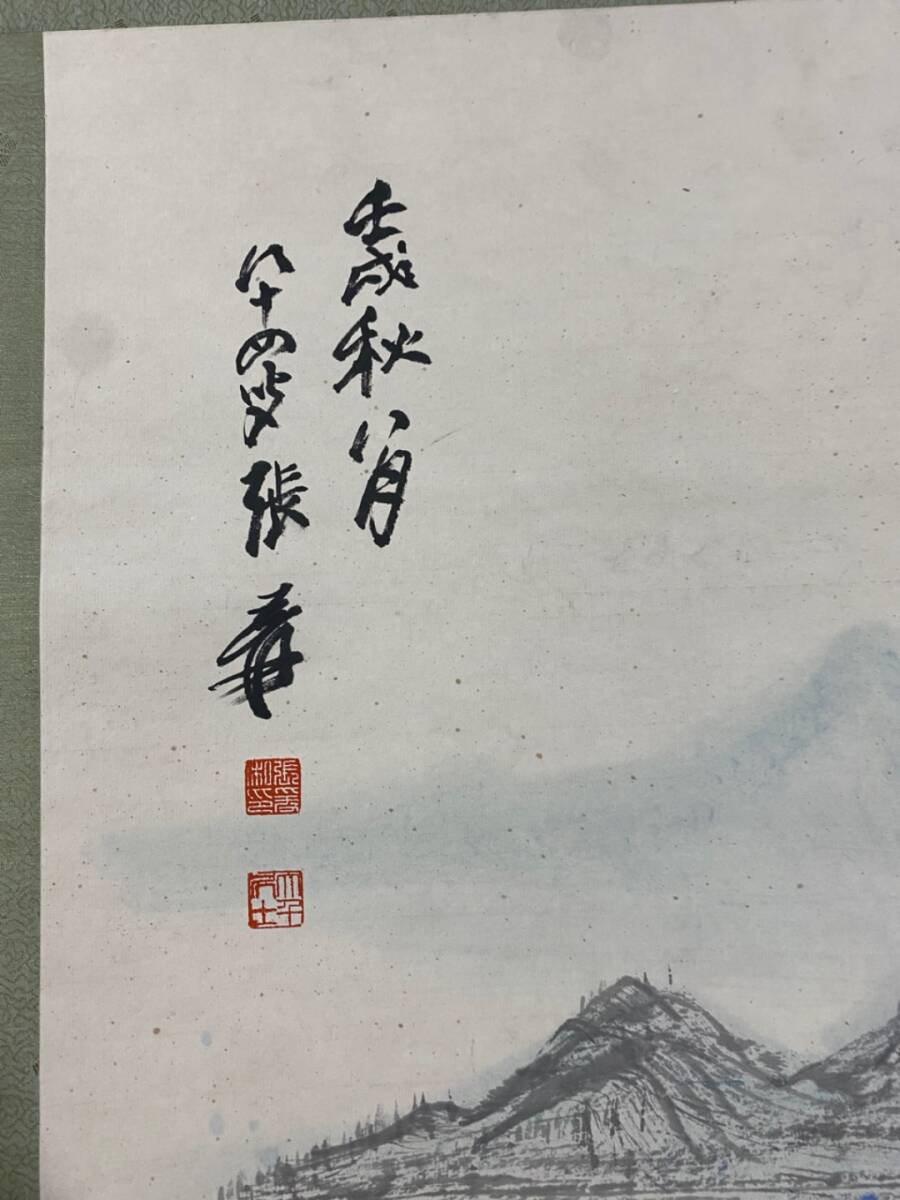 壬戌秋八月
八十四叟張爰
張爰私印
大千居士